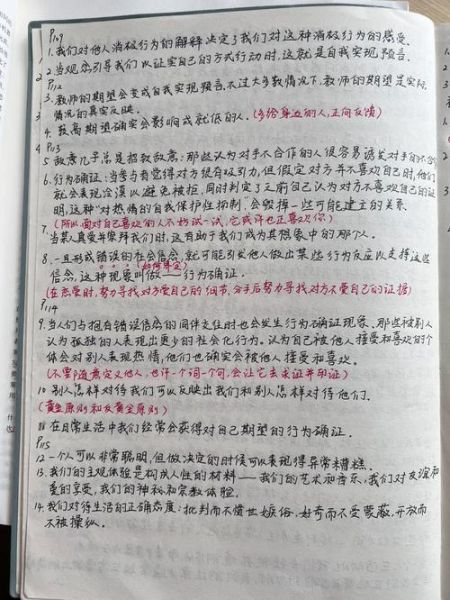 P109
1. 我们对他人消极行为的解释决定了我们对这种消极行为的感受.
2. 当观念引导我们以证实自己的方式行动时,这就是自我实现预言.
P112
3. 教师的期望会变成自我实现预言,不过大多数情况下,教师的期望是实际
情况的真实反映.
4. 较高期望确实会影响成就低的人. (多给身边的人,正向反馈)
P113
5. 敌意几乎总是招致敌意:那些认为对手不合作的人很容易诱发对手的不合作
6. 行为确证:当参与者觉得对方很有吸引力,但假定对方并不喜欢自己时,他们
就会表现冷漠以避免被拒,同时判定了之前自己认为对方不喜欢自己的证
明,这种“对热情的自我保护性抑制”会毁掉一些可能建立的关系.
(所以面对自己喜欢的人不妨试一试,它或许也正喜欢你)
7. 当某人真爱并崇拜我们时,这有助于我们成为其想象中的那个人.
8. 一旦形成错误的社会信念,就可能引发他人做出某些行为反应以支持这些
信念,这种现象叫做——行为确证.
(在恋爱时,努力寻找对方爱自己的细节,分手后努力寻找对方不爱自己的证据)
P114
9. 当人们与拥有错误信念的同伴交往时也会发生行为确证现象、那些被别人
认为孤独的人表现出更少的社会化行为。认为自己被他人接受和喜欢的个
体会对别人表现热情,他们也确实会被他人接受和喜欢.
(不要随意定义他人,也许一个词一个句,会让它去求证并印证)
10. 别人怎样对待我们可以反映出我们和别人怎样对待他们.
(黄金原则和反黄金原则)
11. 在日常生活中我们经常会获得对自己期望的行为确证.
P115
12. 一个人可以非常聪明,但做决定的时候可以表现得异常糟糕.
13. 我们的主观体验是构成人性的材料——我们的艺术和音乐,我们对友谊和
爱的享受,我们的神秘和宗教体验.
14. 我们对待生活的正确态度:批判而不愤世嫉俗,好奇而不受蒙蔽,开放而
不被操纵.